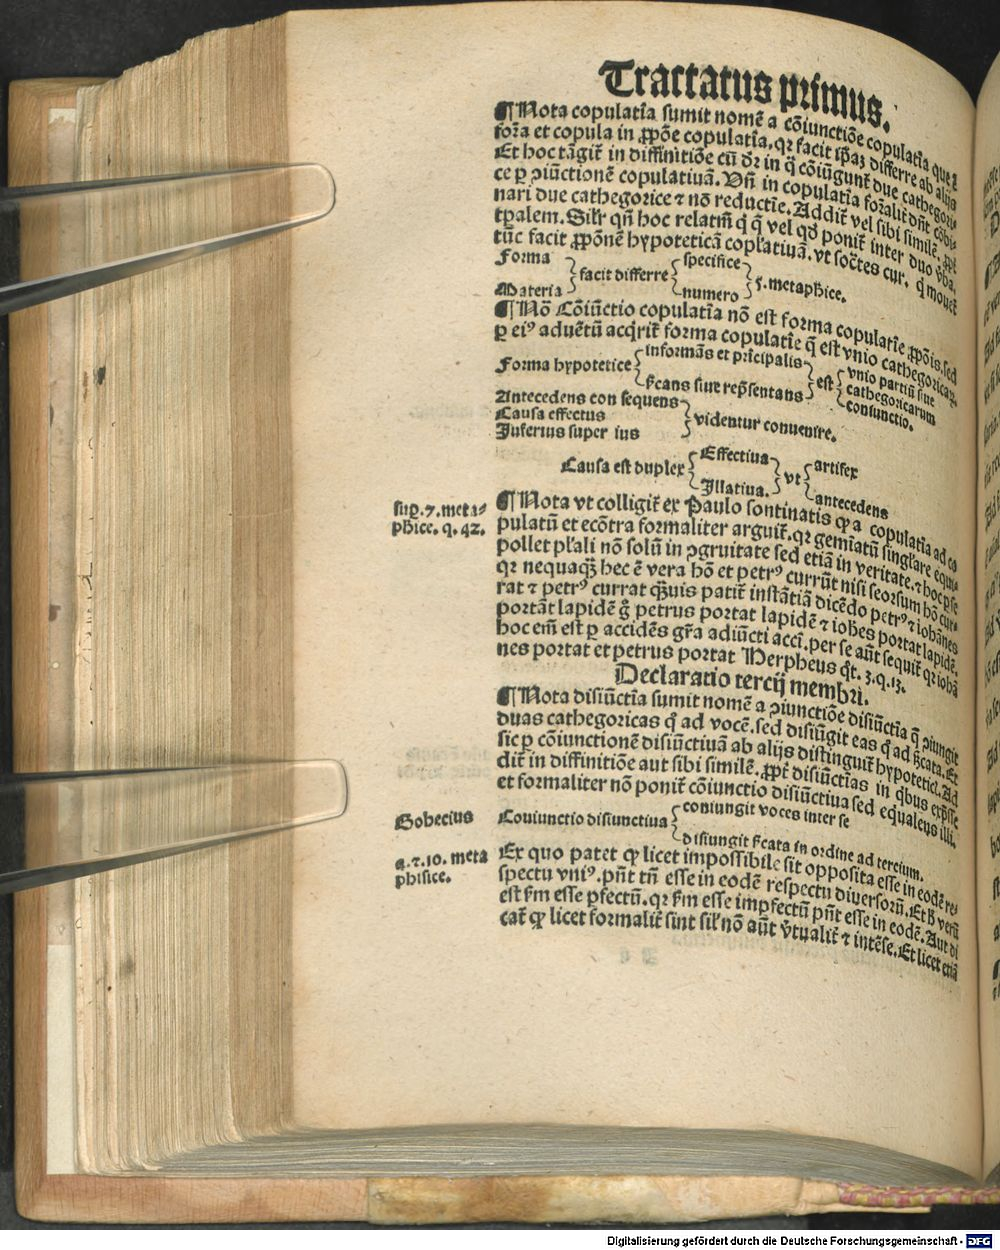 Tractatus primus.
¶ Nota copulatĩa sumit nomẽ a cõiunctiõe copulatĩa que ẽ
forĩa et copula in ꝓpõe copulatĩa. qꝛ facit ip̃aꝫ differre ab alijs
Et hoc tãgit̃ in diffinitiõe cũ dr̃ in q̃ cõiũgunt̃ due cathegorice
ce ꝑ ꝯiũctionẽ copulatiuã. Vñ in copulatĩa for̃alit̃ dñt cõbi-
nari due cathegorice ⁊ nõ reductĩe. Addit̃ vel sibi similẽ. ꝓpt̃
tp̃alem. Sil̃r qñ hoc relatiũ q̃ q̃ vel qđ ponit̃ inter duo v̾ba,
tũc facit ꝓpõnẽ hypoteticã copl̃atiuã. vt soc̃tes cur. q̃ mouet̃
Forma
facit differre
specifice
5. metaph̃ice.
Materia
numero
¶ Nõ Cõiũctio copulatĩa nõ est forma copulatĩe ꝓpõis. sed
ꝑ eiꝰ aduẽtũ acq̃rit̃ forma copulatĩe q̃ est vnio cathegoricaꝝ.
Forma hypotetice
informãs et prĩcipalis
est
vnio partiũ siue
cathegoricarum
coniunctio.
ſ̃cans siue rep̃sentans
Antecedens con sequens
Causa effectus
Inferius super ius
videntur conuenire.
Causa est duplex
Effectiua
vt
artifex
Illatiua.
antecedens
sup. 7. meta-
ph̃ice. q. 42.
¶ Nota vt colligit̃ ex Paulo sontinatis ꝙ a copulatĩa ad co
pulatũ et ecõtra formaliter arguit̃. qꝛ gemĩatũ singl̃are equi-
pollet pl̃ali nõ solũ in ꝯgruitate sed etiã in veritate. ⁊ hoc ꝑ se
qꝛ nequaqꝫ hec ẽ vera hõ et petrꝰ currũt nisi seorsum hõ cur-
rat ⁊ petrꝰ currat qꝫuis patit̃ instãtiã dicẽdo petrꝰ ⁊ iohãnes
portãt lapidẽ g̃ petrus portat lapidẽ ⁊ ioh̃es portat lapidẽ.
hoc em̃ est ꝑ accidẽs gr̃a adiũcti acci. per se aũt sequit̃ qꝛ iohã
nes portat et petrus portat Herpheus q̃t. 3. q. 13.
Declaratio tercij membri.
¶ Nota disiũctĩa sumit nomẽ a ꝯiunctiõe disiũctĩa q̃ ꝯiungit
duas cathegoricas q̃ ad vocẽ. sed disiũgit eas q̃ ad ſ̃cata. Et
sic ꝑ cõiunctionẽ disiũctiuã ab alijs distinguit̃ hypotetici. Ad
dit̃ in diffinitiõe aut sibi similẽ. ꝓpt̃ disiũctĩas in q̃bus exp̃sse
et formaliter nõ ponit̃ cõiunctio disiũctiua sed equaleus illi.
Gobecius
Coniunctio disiunctiua
coniungit voces inter se
disiungit ſ̃cata in ordine ad tercium.
4. ⁊. 10. meta
phisice.
Ex quo patet ꝙ licet impossibile sit opposita esse in eodẽ re-
spectu vniꝰ. pñt tñ esse in eodẽ respectu diuersorũ. Et h̾ verũ
est ẜm esse ꝑfectũ. qꝛ ẜm esse imꝑfectũ pñt esse in eodẽ. Aut di
cat̃ ꝙ licet formalit̃ sint sil̃ nõ aũt v̾tualit̃ ⁊ intẽse. Et licet etiã
Digitalisierung gefördert durch die Deutsche Forschungsgemeinschaft - DFG